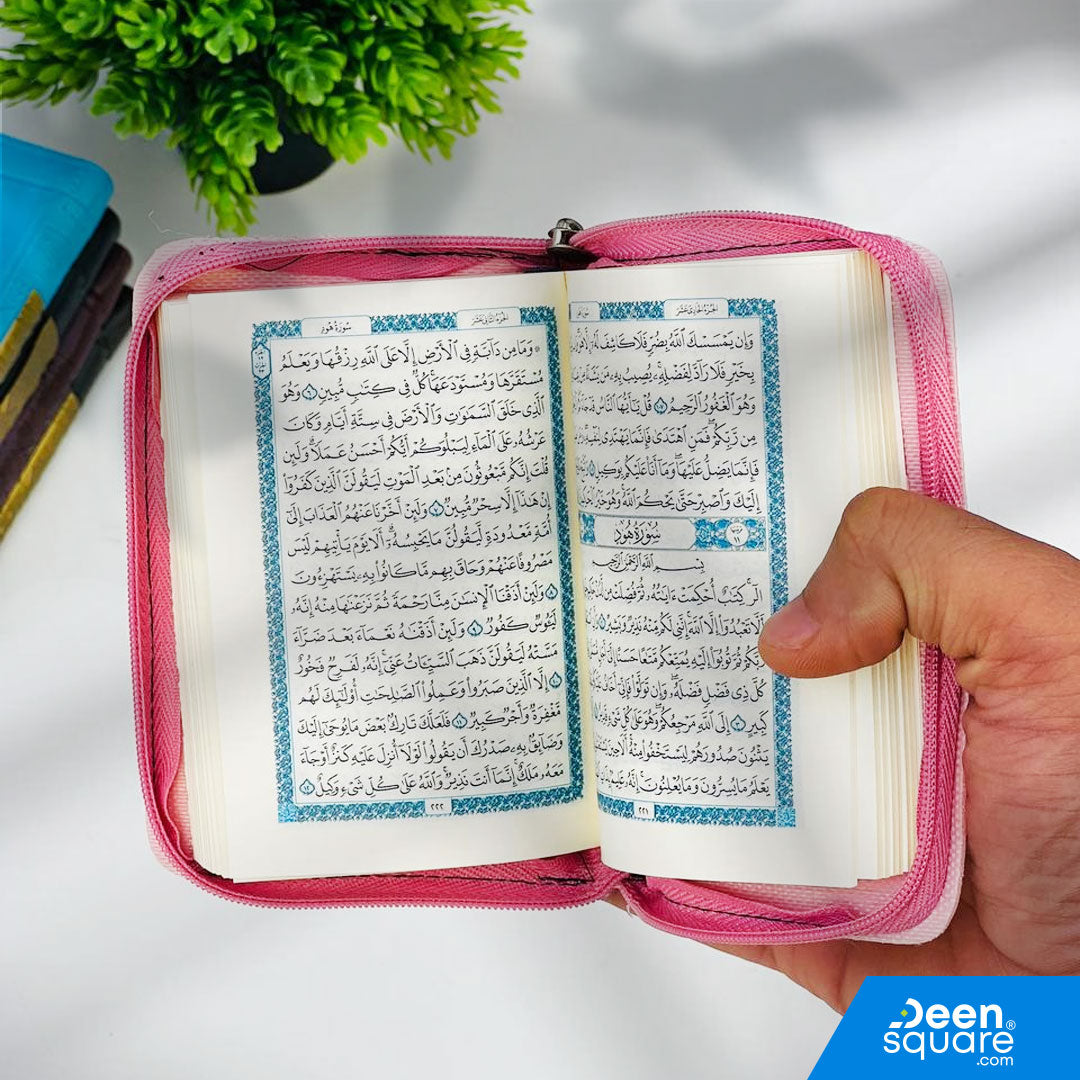 الجزء الحادي عشر
وَإِن يَمْسَسْكَ ٱللَّهُ بِضُرٍّ فَلَا كَاشِفَ لَهُۥٓ إِلَّا هُوَ
بِخَيْرٍ فَلَا رَآدَّ لِفَضْلِهِۦ يُصِيبُ بِهِۦ مَن يَشَآءُ
وَهُوَ ٱلْغَفُورُ ٱلرَّحِيمُ ١٠٧ قُلْ يَٰٓأَيُّهَا ٱلنَّاسُ قَدْ جَآءَكُمُ
مِن رَّبِّكُمْ فَمَنِ ٱهْتَدَىٰ فَإِنَّمَا يَهْتَدِي لِنَفْسِهِۦ
فَإِنَّمَا يَضِلُّ عَلَيْهَا وَمَآ أَنَا۠ عَلَيْكُم بِوَكِيلٍ
إِلَيْكَ وَٱصْبِرْ حَتَّىٰ يَحْكُمَ ٱللَّهُ وَهُوَ خَيْرُ ٱلْحَٰكِمِينَ
سُورَةُ هُودٍ
١١
بِسْمِ ٱللَّهِ ٱلرَّحْمَٰنِ ٱلرَّحِيمِ
الٓر كِتَٰبٌ أُحْكِمَتْ ءَايَٰتُهُۥ ثُمَّ فُصِّلَتْ مِن لَّدُنْ
أَلَّا تَعْبُدُوٓا۟ إِلَّا ٱللَّهَ إِنَّنِي لَكُم مِّنْهُ نَذِيرٌ وَبَشِيرٌ
رَبَّكُمْ ثُمَّ تُوبُوٓا۟ إِلَيْهِ يُمَتِّعْكُم مَّتَٰعًا حَسَنًا إِلَىٰٓ
كُلَّ ذِي فَضْلٍ فَضْلَهُۥ وَإِن تَوَلَّوْا۟ فَإِنِّيٓ أَخَافُ
كَبِيرٍ ٣ إِلَى ٱللَّهِ مَرْجِعُكُمْ وَهُوَ عَلَىٰ كُلِّ شَيْءٍ قَدِيرٌ
يَثْنُونَ صُدُورَهُمْ لِيَسْتَخْفُوا۟ مِنْهُ أَلَا حِينَ
يَعْلَمُ مَا يُسِرُّونَ وَمَا يُعْلِنُونَ إِنَّهُۥ عَلِيمٌۢ
٢٢١
الجزء الثاني عشر
سورة هود
۞ وَمَا مِن دَآبَّةٍ فِي ٱلْأَرْضِ إِلَّا عَلَى ٱللَّهِ رِزْقُهَا وَيَعْلَمُ
مُسْتَقَرَّهَا وَمُسْتَوْدَعَهَا كُلٌّ فِي كِتَٰبٍ مُّبِينٍ ٦ وَهُوَ
ٱلَّذِي خَلَقَ ٱلسَّمَٰوَٰتِ وَٱلْأَرْضَ فِي سِتَّةِ أَيَّامٍ وَكَانَ
عَرْشُهُۥ عَلَى ٱلْمَآءِ لِيَبْلُوَكُمْ أَيُّكُمْ أَحْسَنُ عَمَلًا وَلَئِن
قُلْتَ إِنَّكُم مَّبْعُوثُونَ مِنۢ بَعْدِ ٱلْمَوْتِ لَيَقُولَنَّ ٱلَّذِينَ كَفَرُوٓا۟
إِنْ هَٰذَآ إِلَّا سِحْرٌ مُّبِينٌ ٧ وَلَئِنْ أَخَّرْنَا عَنْهُمُ ٱلْعَذَابَ إِلَىٰٓ
أُمَّةٍ مَّعْدُودَةٍ لَّيَقُولُنَّ مَا يَحْبِسُهُۥٓ أَلَا يَوْمَ يَأْتِيهِمْ لَيْسَ
مَصْرُوفًا عَنْهُمْ وَحَاقَ بِهِم مَّا كَانُوا۟ بِهِۦ يَسْتَهْزِءُونَ
٨ وَلَئِنْ أَذَقْنَا ٱلْإِنسَٰنَ مِنَّا رَحْمَةً ثُمَّ نَزَعْنَٰهَا مِنْهُ إِنَّهُۥ
لَيَـُٔوسٌ كَفُورٌ ٩ وَلَئِنْ أَذَقْنَٰهُ نَعْمَآءَ بَعْدَ ضَرَّآءَ
مَسَّتْهُ لَيَقُولَنَّ ذَهَبَ ٱلسَّيِّـَٔاتُ عَنِّيٓ إِنَّهُۥ لَفَرِحٌ فَخُورٌ
١٠ إِلَّا ٱلَّذِينَ صَبَرُوا۟ وَعَمِلُوا۟ ٱلصَّٰلِحَٰتِ أُو۟لَٰٓئِكَ لَهُم
مَّغْفِرَةٌ وَأَجْرٌ كَبِيرٌ ١١ فَلَعَلَّكَ تَارِكٌۢ بَعْضَ مَا يُوحَىٰٓ إِلَيْكَ
وَضَآئِقٌۢ بِهِۦ صَدْرُكَ أَن يَقُولُوا۟ لَوْلَآ أُنزِلَ عَلَيْهِ كَنزٌ أَوْ جَآءَ
مَعَهُۥ مَلَكٌ إِنَّمَآ أَنتَ نَذِيرٌ وَٱللَّهُ عَلَىٰ كُلِّ شَيْءٍ وَكِيلٌ ١٢
٢٢٢
Deen
square®
.com